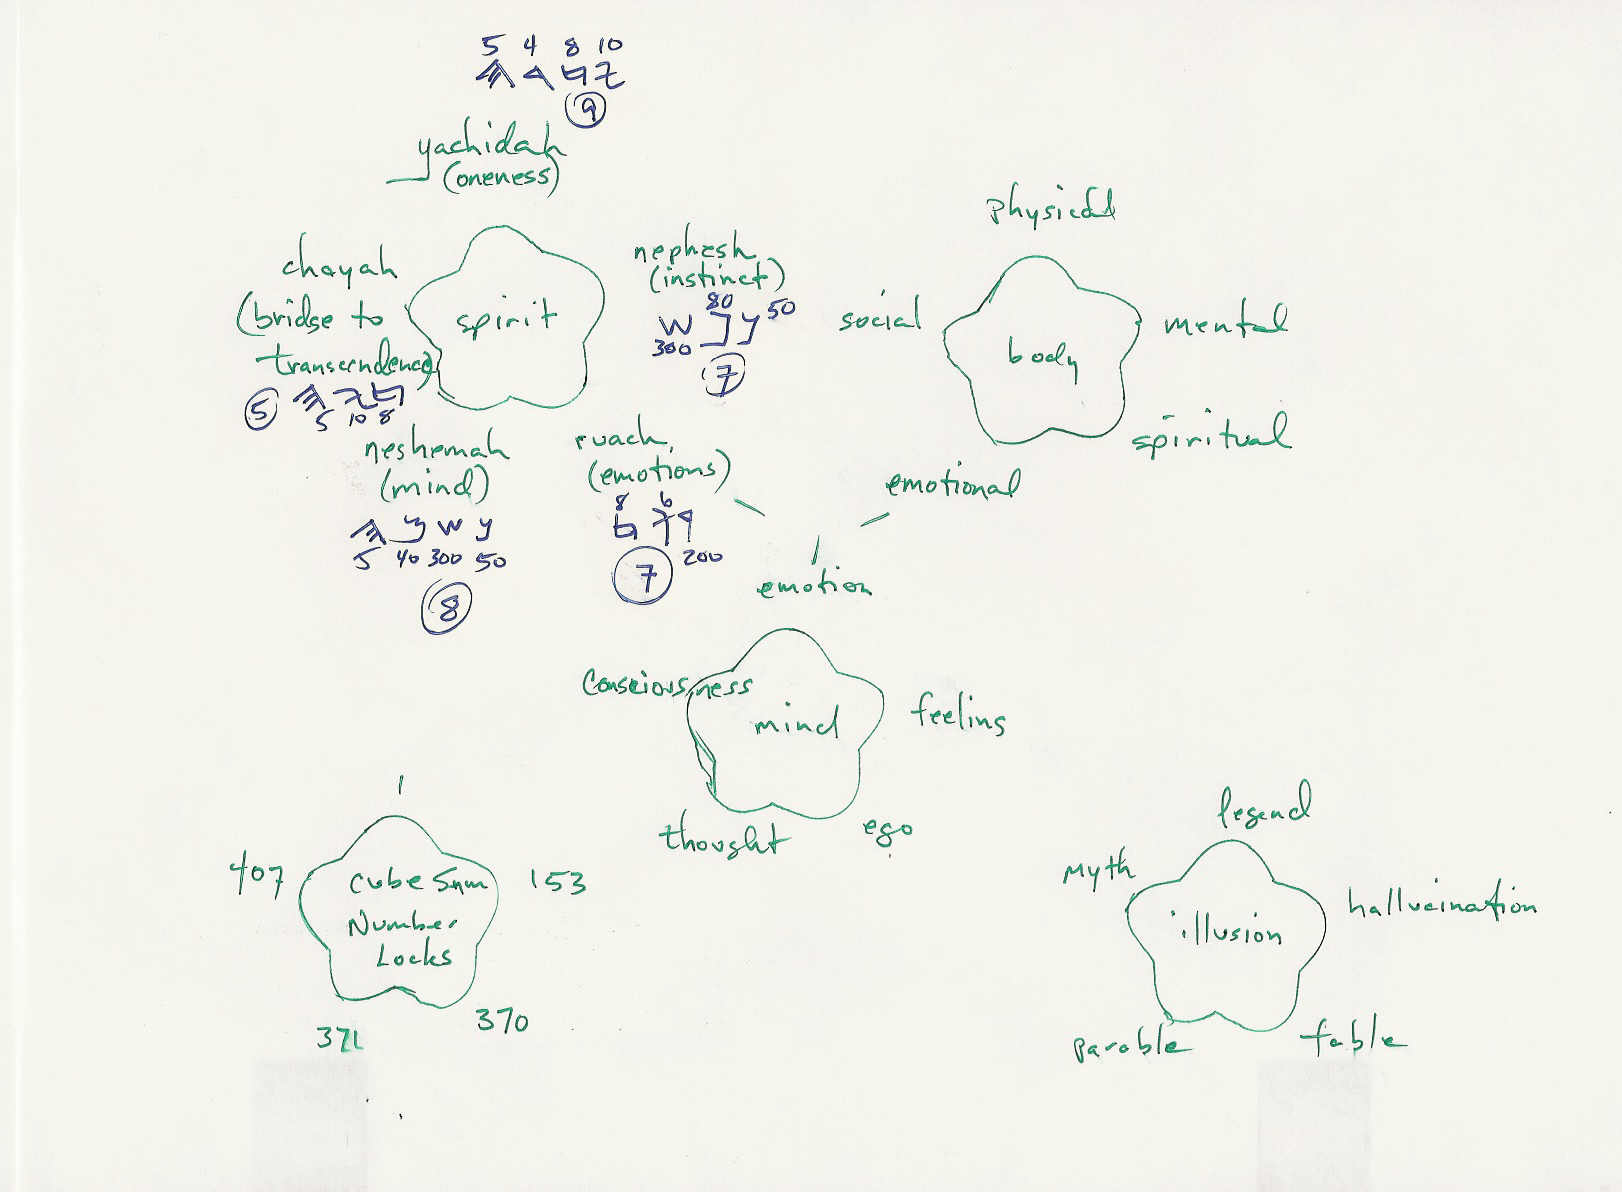 5 4 8 10
𐤉𐤇𐤃𐤄
9
yachidah
(oneness)
chayah
(bridge to
transcendence)
𐤇𐤉𐤄
5
5 10 8
spirit
nephesh
(instinct)
80
50
𐤍𐤐𐤔
300
7
neshemah
(mind)
𐤍𐤔𐤌𐤄
5 40 300 50
8
ruach
(emotions)
8 6
𐤓𐤅𐤇
200
7
physical
social
mental
body
spiritual
emotional
emotion
consciousness
mind
feeling
thought
ego
1
407
153
cube sum
Number
Locks
371
370
legend
myth
hallucination
illusion
parable
fable